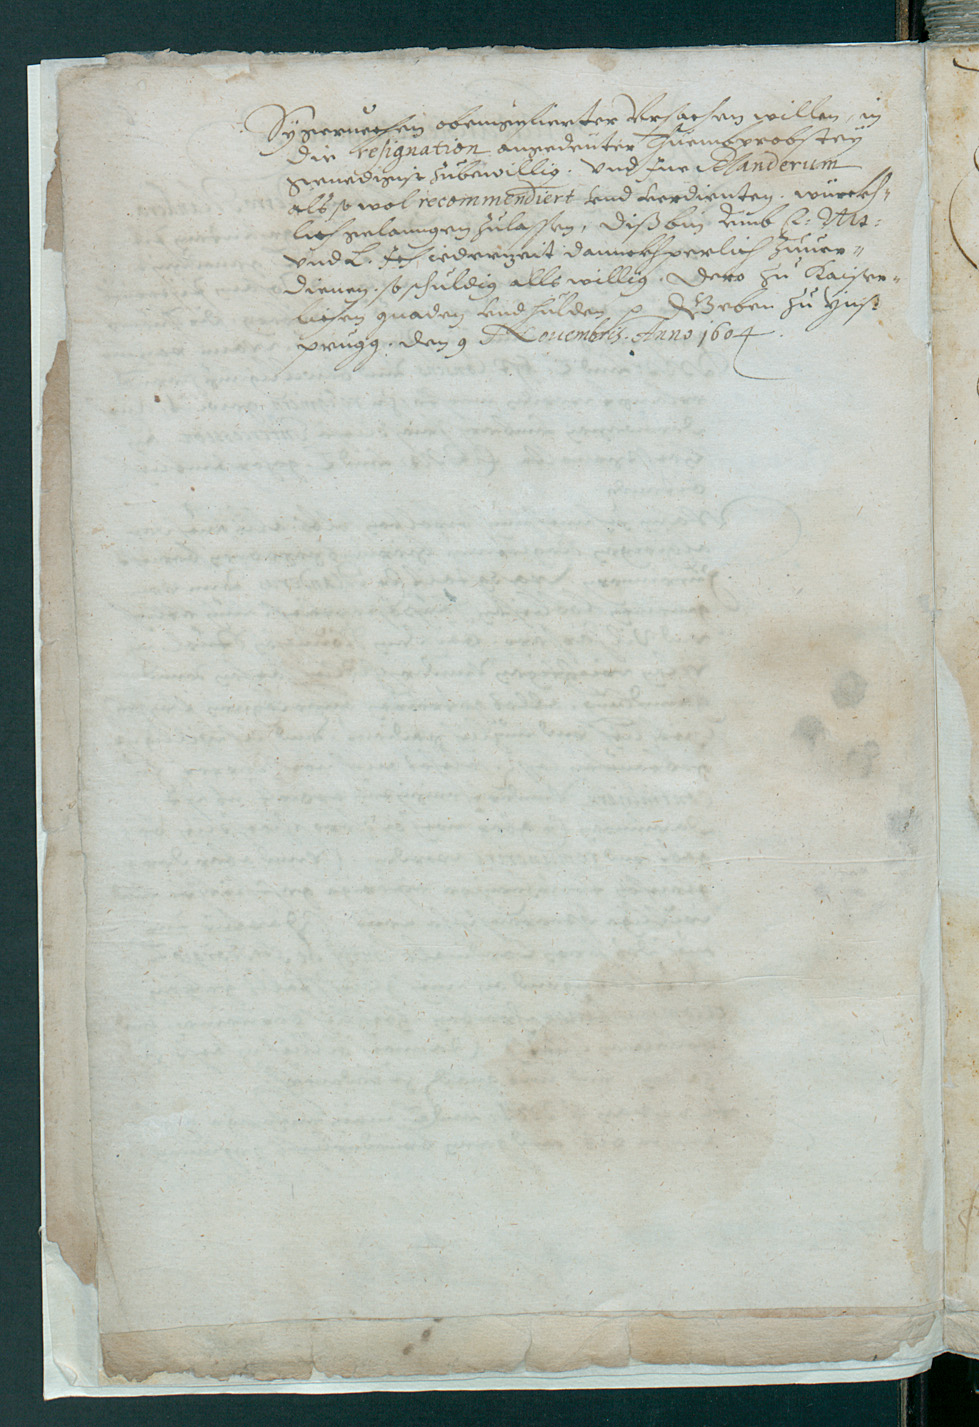 Sy geruechen obenisinierter Ursachen willen, in
die resignation angedeuter Thuembprobstey
genedigist zubewillig. Und Jne Mander um
als so wol recommendiert und verdienten. würckh=
lich gelanngen zulassen, diß bin umb E: Mt:
und L. Jch jederzeit danckhperlich zuuer=
dienen. so schuldig alls willig. Dero zu Kaiser=
lichen gnaden und hulden Geben zu Ynß=
prugg. den 9 Nouembris. Anno 1604.